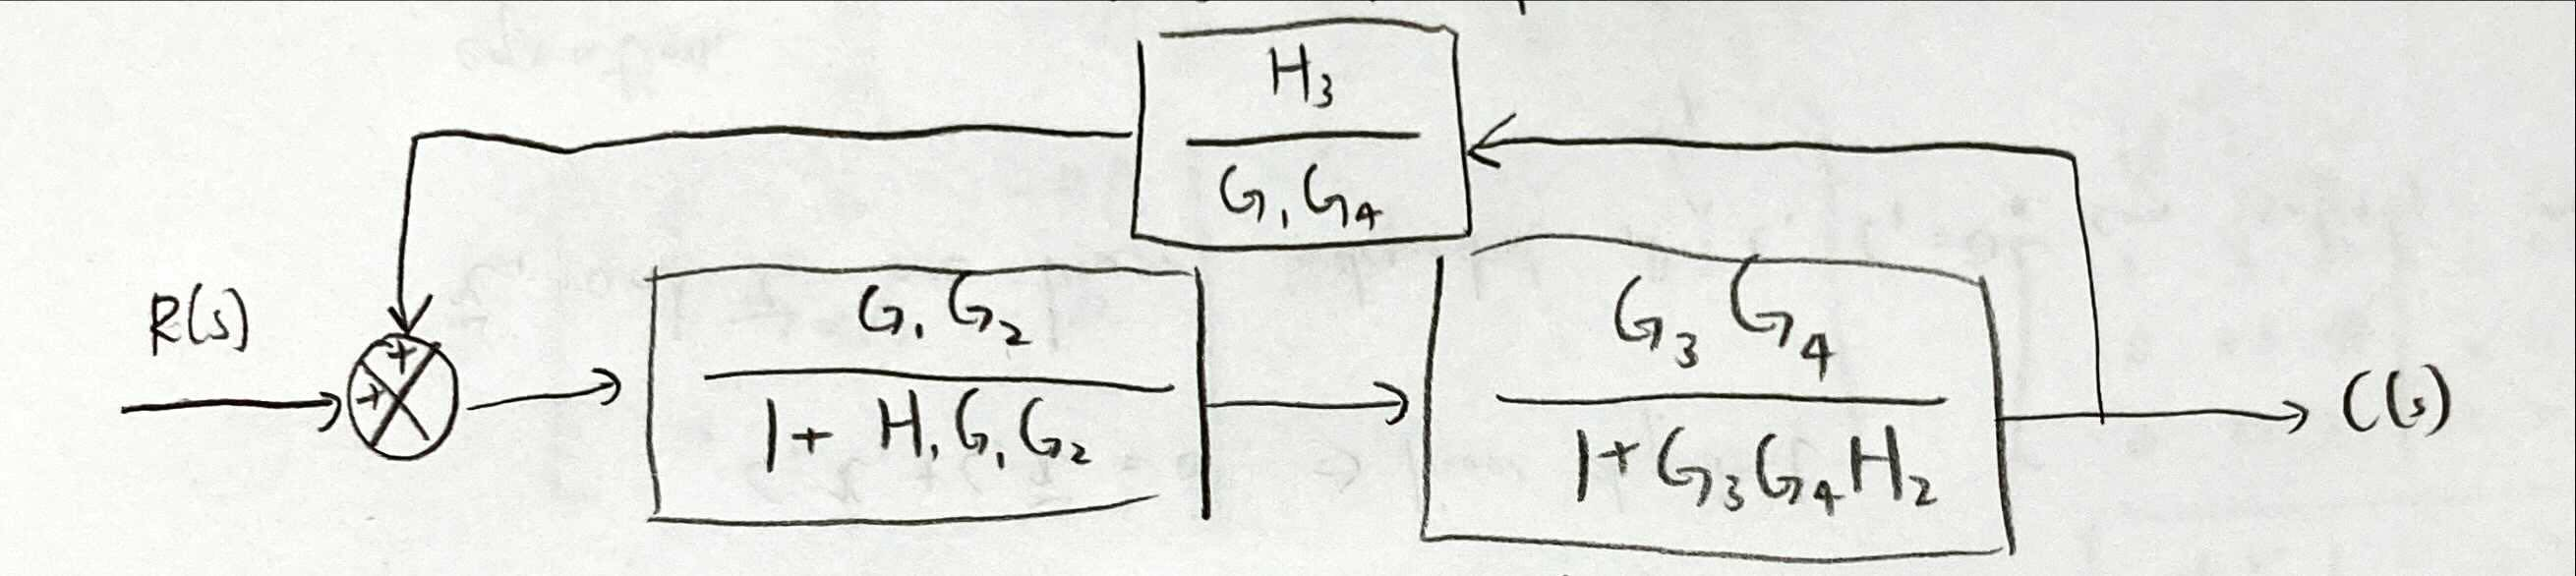 H₃
G₁G₄
R(s)
+
+
G₁G₂
1+ H₁G₁G₂
G₃G₄
1+G₃G₄H₂
C(s)